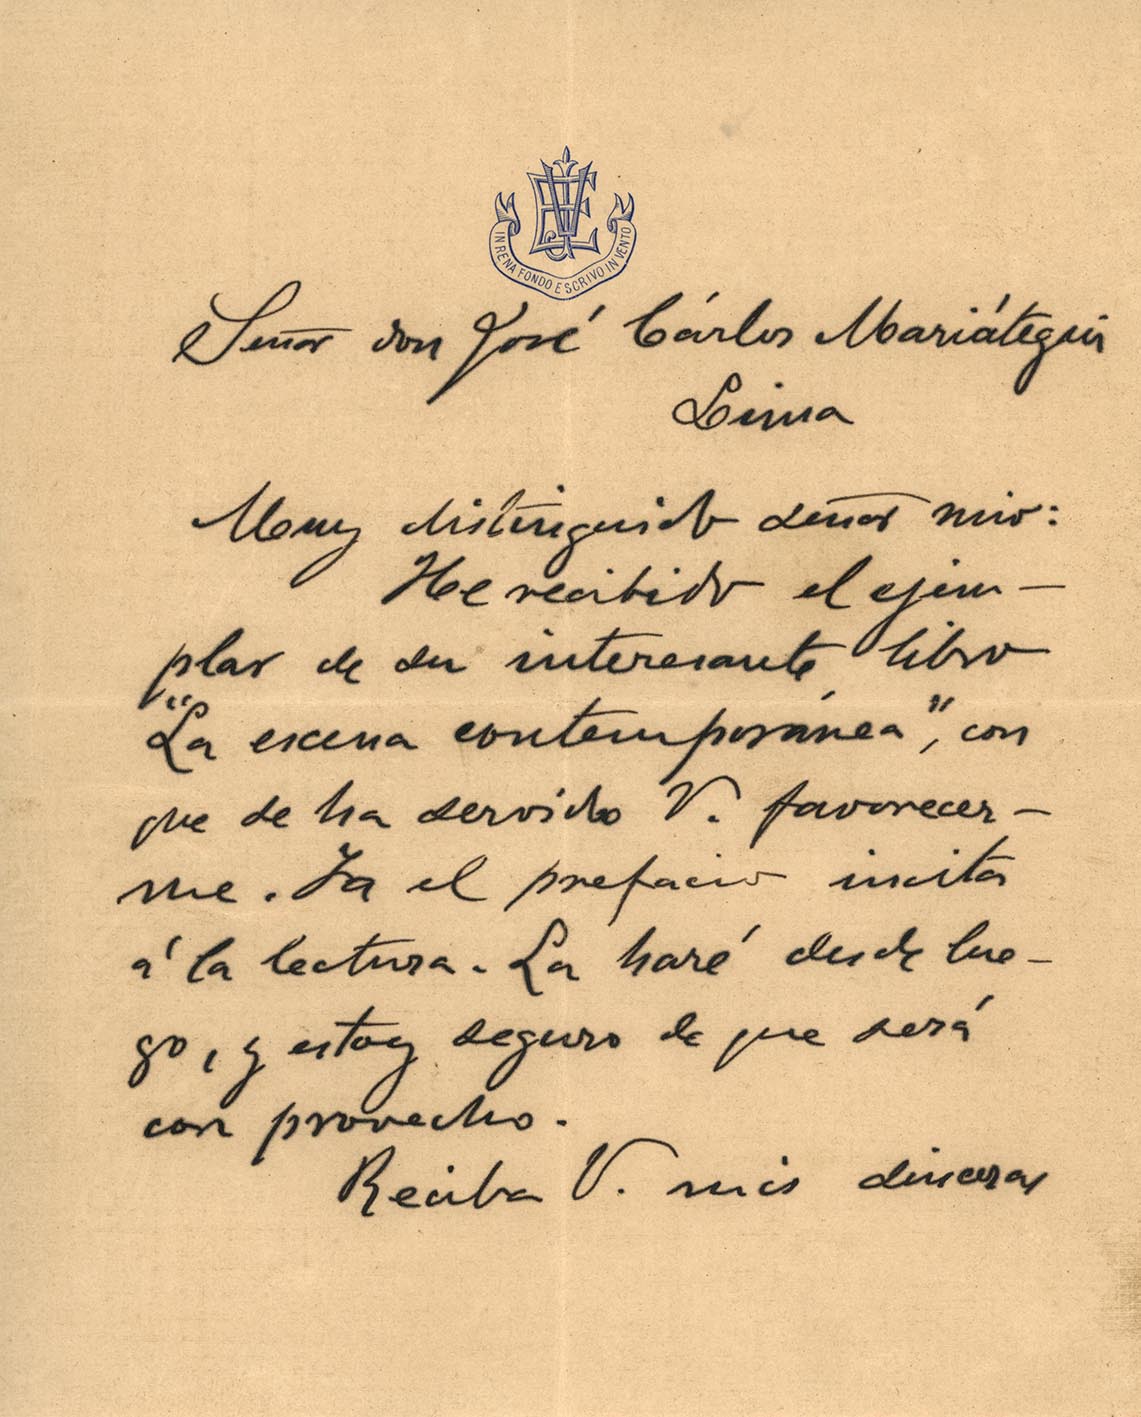 IN RENA FONDO E SCRIVO IN VENTO
Señor don José Cárlos Mariátegui
Lima
Muy distinguido señor mio:
He recibido el ejem-
plar de su interesante libro
"La escena contemporánea", con
que se ha servido V. favorecer-
me. Ya el prefacio incita
á la lectura. La haré desde lue-
go, y estoy seguro de que será
con provecho.
Reciba V. mis sinceras